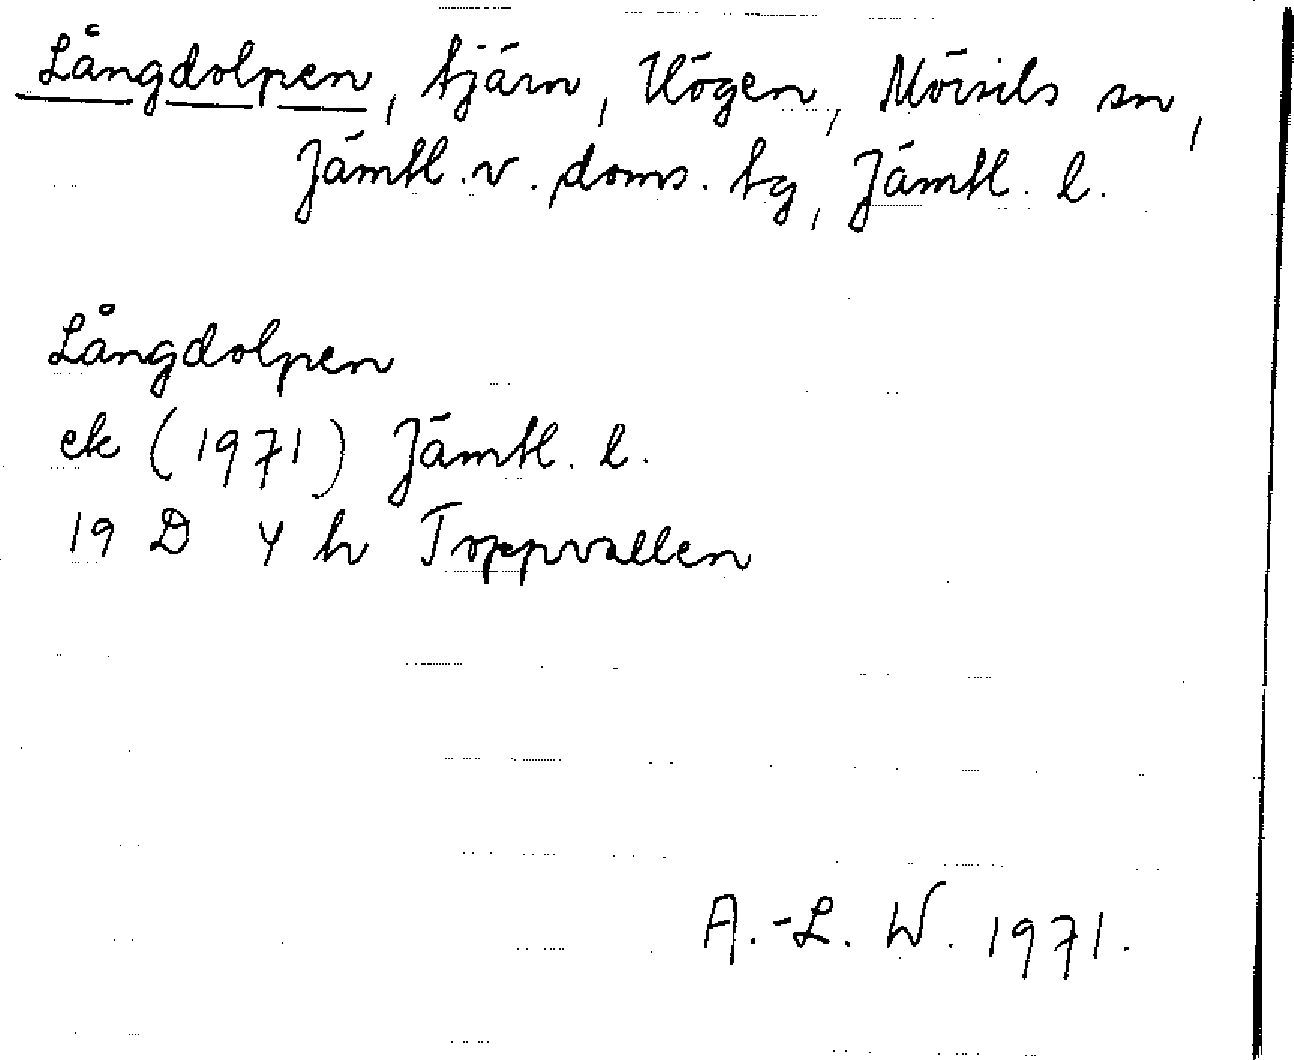 Långdolpen, tjärn, Högen, Mörsils sn,
Jämtl. v. doms. tg, Jämtl. l.
Långdolpen
ek (1971) Jämtl. l.
19 D 4 h Toppvallen
A.-L. W. 1971.